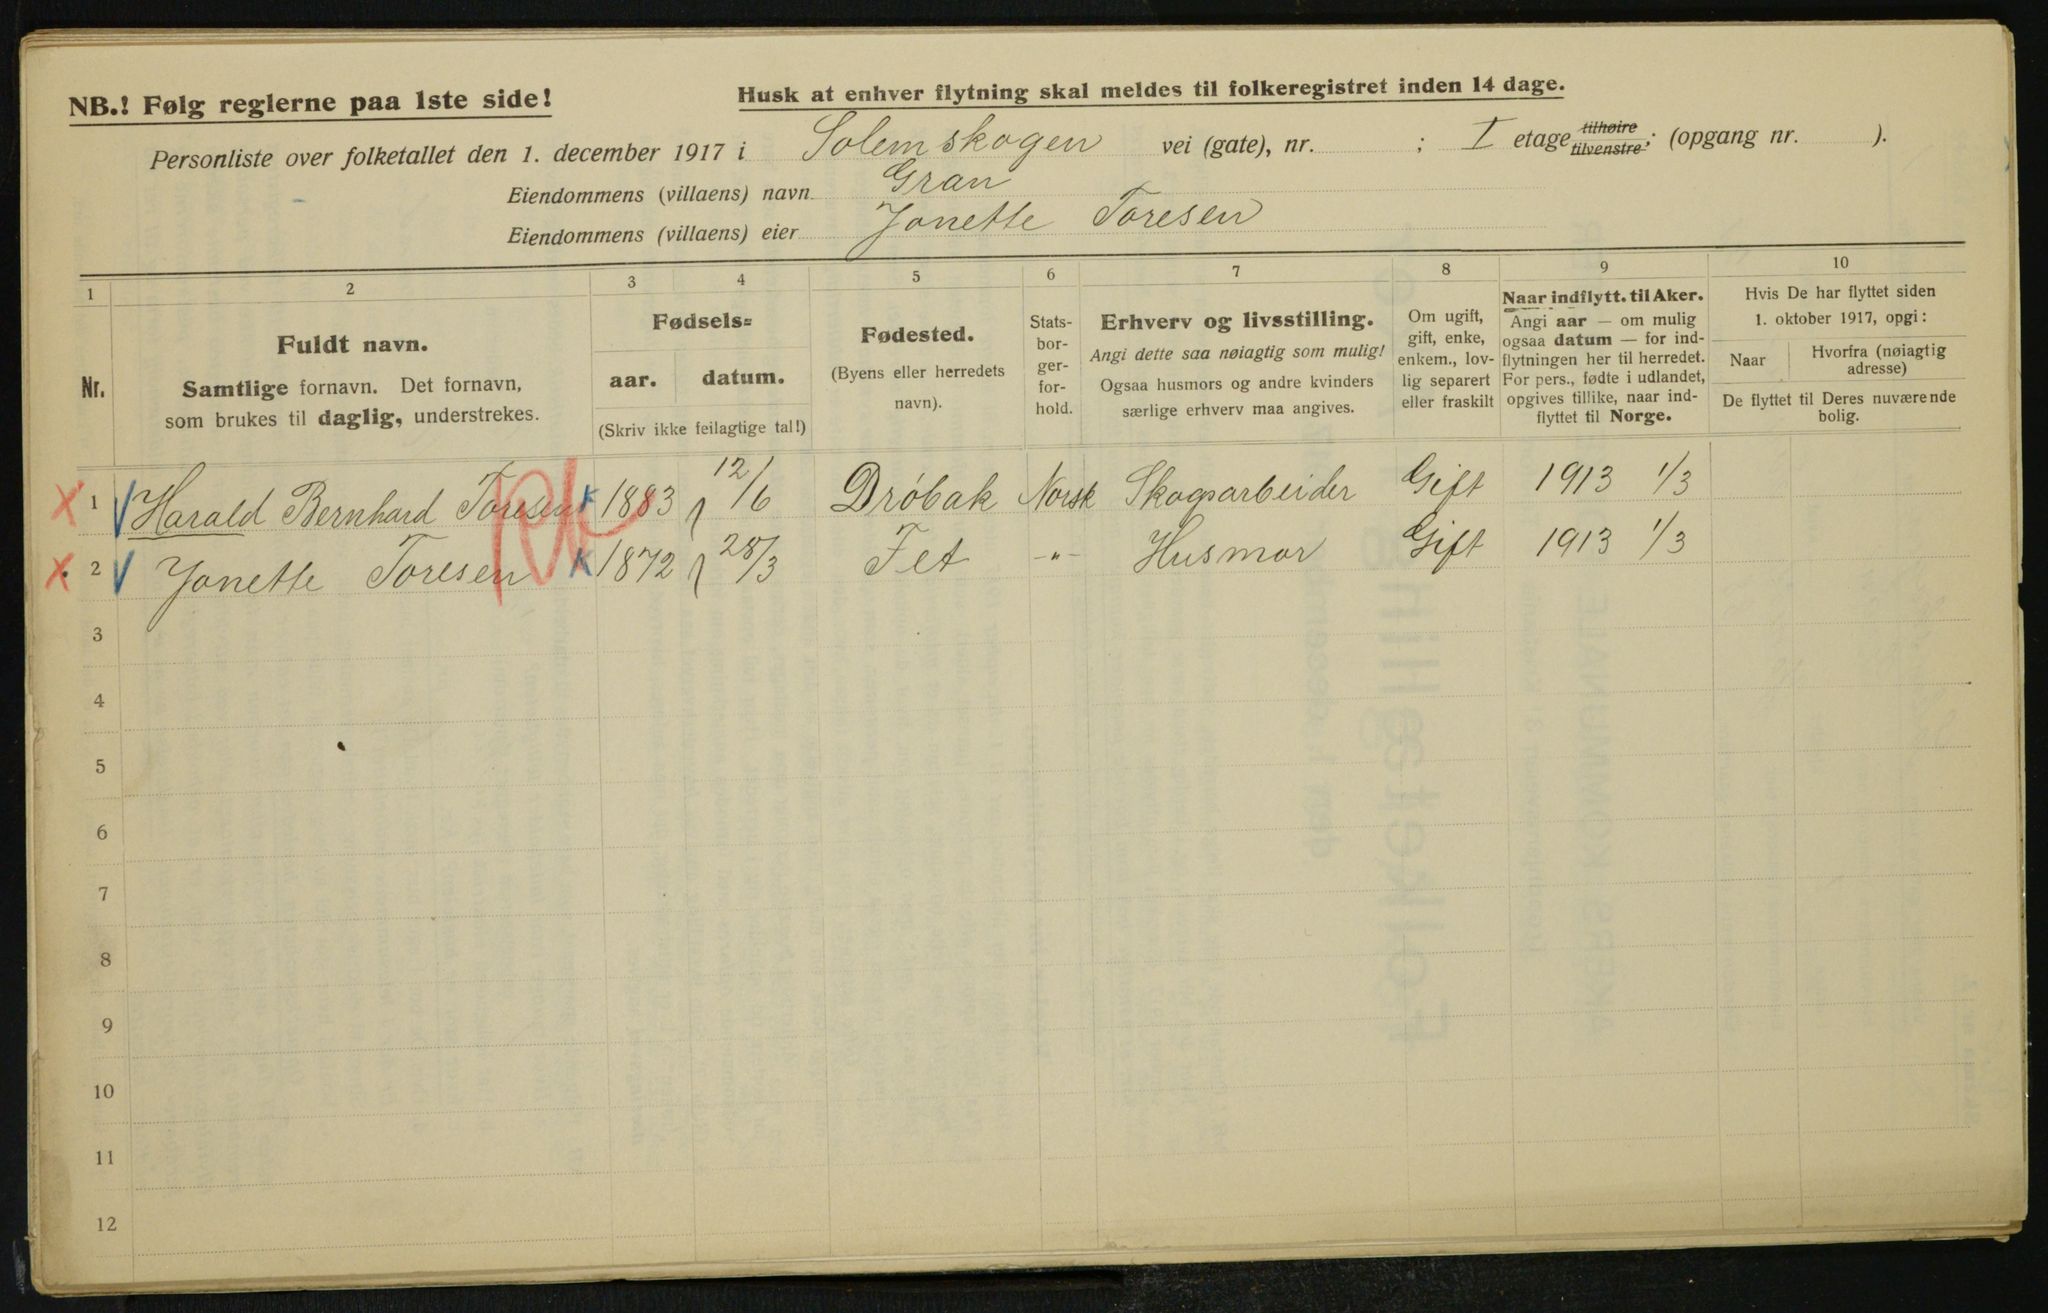 NB.! Følg reglerne paa 1ste side!
Husk at enhver flytning skal meldes til folkeregistret inden 14 dage.
Personliste over folketallet den 1. december 1917 i Solemskogen vei (gate), nr. ; I etage tilhøire tilvenstre; (opgang nr. ).
Eiendommens (villaens) navn Gran
Eiendommens (villaens) eier Jonette Toresen
1 2 3 4 5 6 7 8 9 10
Nr.
Fuldt navn.
Samtlige fornavn. Det fornavn,
som brukes til daglig, understrekes.
Fødsels=
aar. datum.
(Skriv ikke feilagtige tal!)
Fødested.
(Byens eller herredets
navn).
Stats-
bor-
ger-
for-
hold.
Erhverv og livsstilling.
Angi dette saa nøiagtig som mulig!
Ogsaa husmors og andre kvinders
særlige erhverv maa angives.
Om ugift,
gift, enke,
enkem., lov-
lig separert
eller fraskilt
Naar indflytt. til Aker.
Angi aar — om mulig
ogsaa datum — for ind-
flytningen her til herredet.
For pers., fødte i udlandet,
opgives tillike, naar ind-
flyttet til Norge.
Hvis De har flyttet siden
1. oktober 1917, opgi:
Naar
Hvorfra (nøiagtig
adresse)
De flyttet til Deres nuværende
bolig.
1 Harald Bernhard Toresen K 1883 12/6 Drøbak Norsk Skogsarbeider Gift 1913 1/3
2 Jonette Toresen K 1872 28/3 Fet -"- Husmor Gift 1913 1/3
3
4
5
6
7
8
9
10
11
12